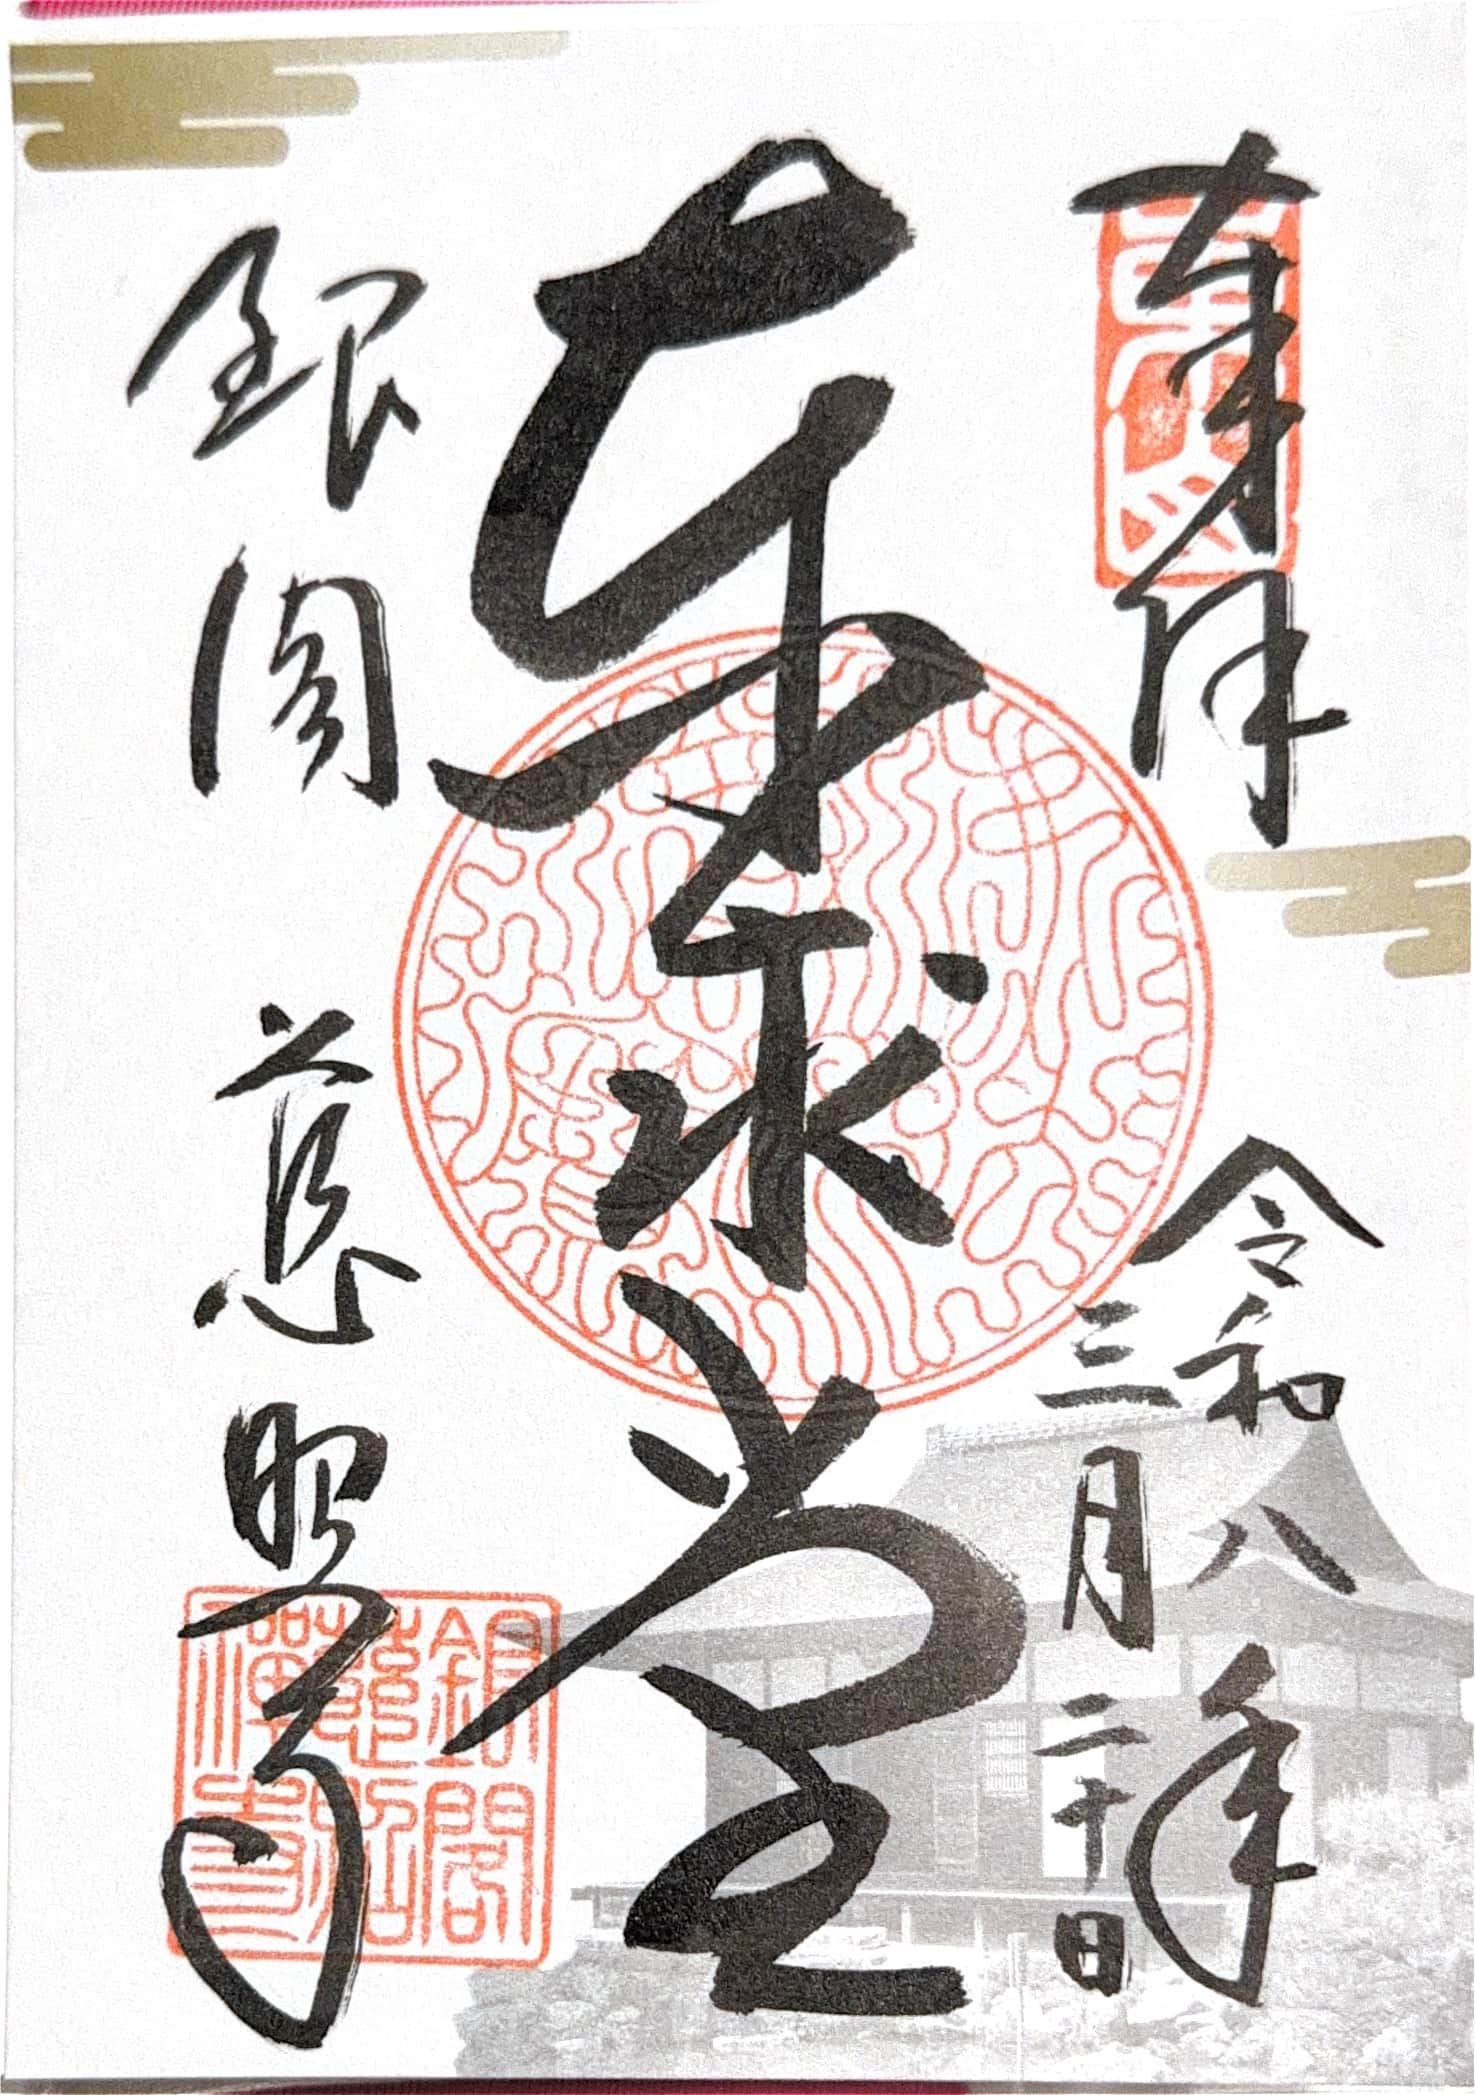 奉拝
令和八年
三月二十日
東求堂
銀閣 慈照寺
銀閣
慈照
禪寺